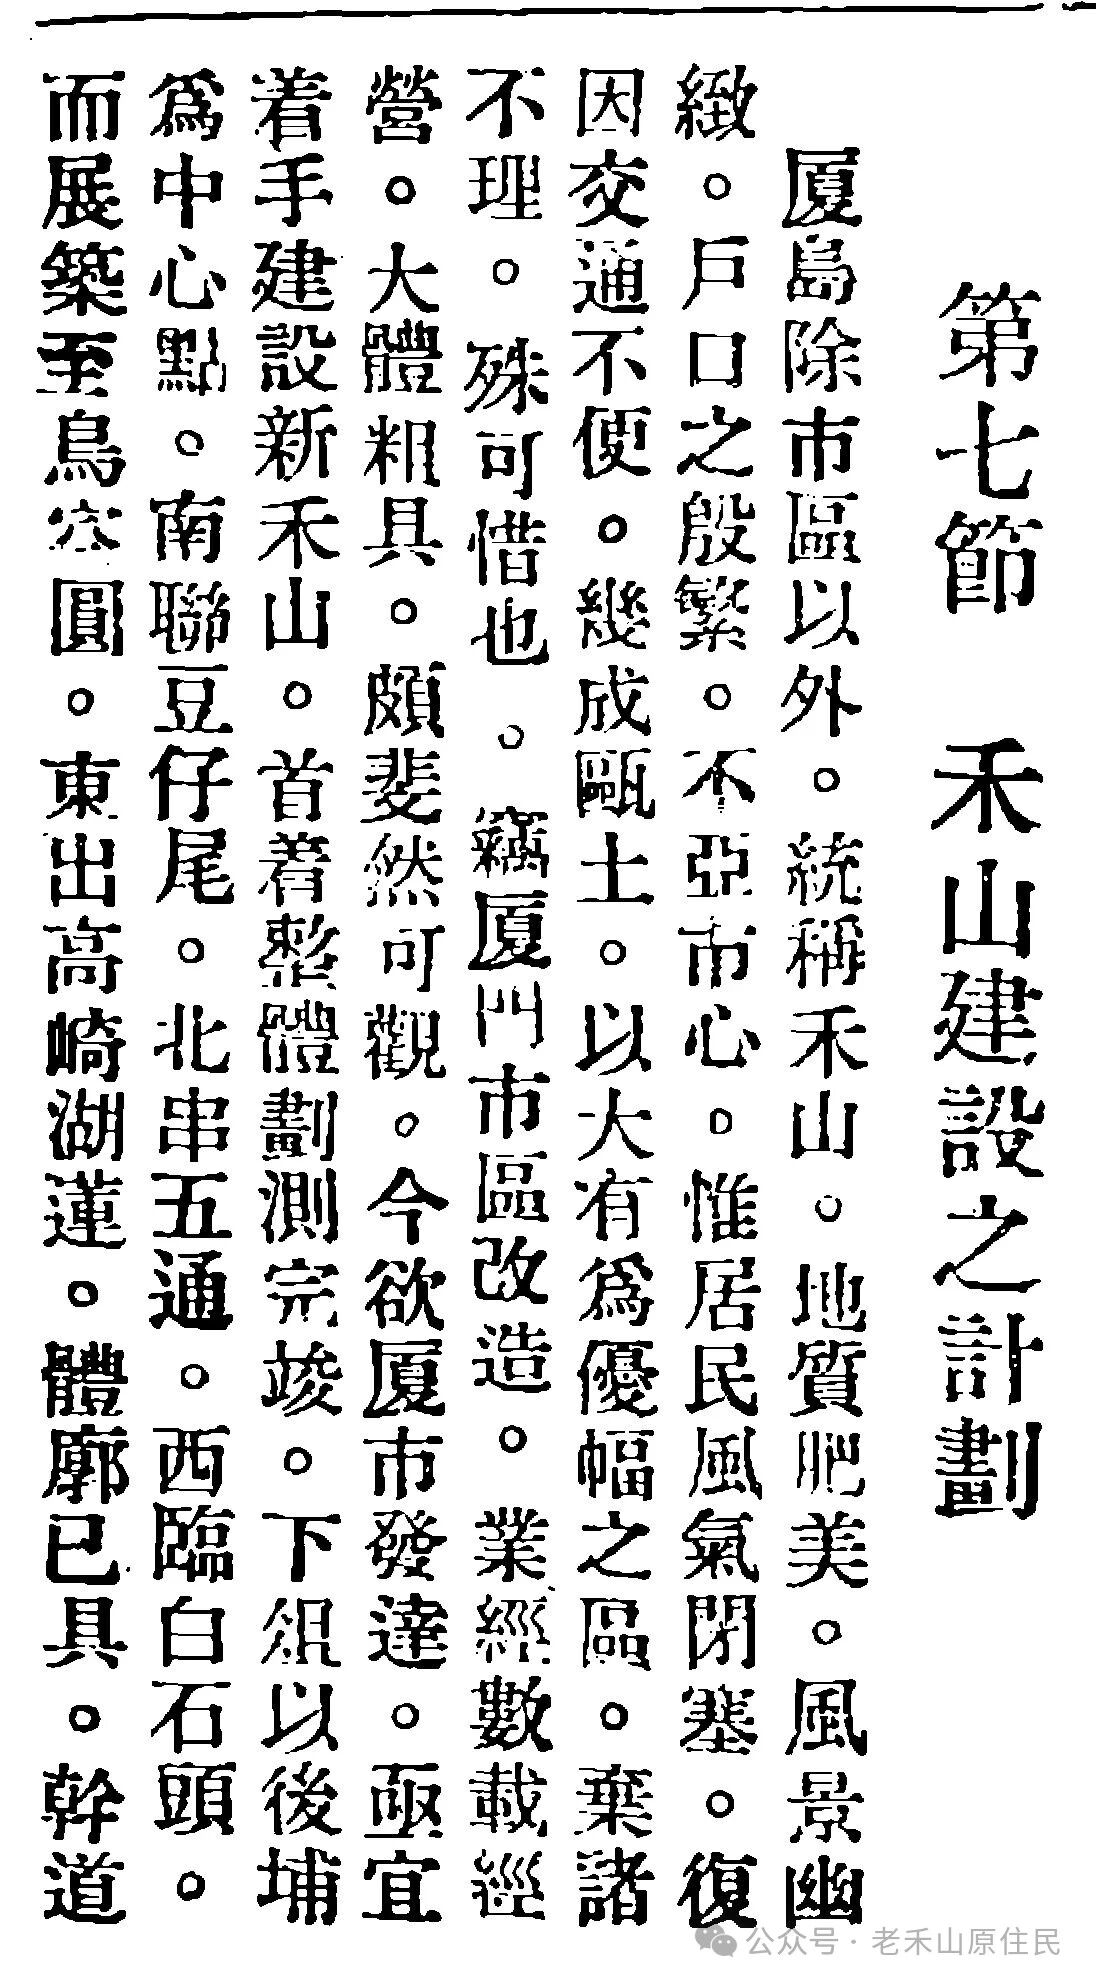 第七節　禾山建設之計劃
厦島除市區以外。統稱禾山。地質肥美。風景幽
緻。戶口之殷繁。不亞市心。惟居民風氣閉塞。復
因交通不便。幾成甌土。以大有爲優幅之區。棄諸
不理。殊可惜也。竊厦門市區改造。業經數載經
營。大體粗具。頗斐然可觀。今欲厦市發達。亟宜
着手建設新禾山。首着整體劃測完竣。下俎以後埔
爲中心點。南聯豆仔尾。北串五通。西臨白石頭。
而展築至烏空圓。東出高崎湖蓮。體廓已具。幹道
公众号·老禾山原住民